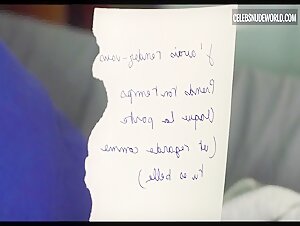 CELEBSNUDEWORLD.COM
J'avais rendez-vous
Prends ton temps
Claque la porte
(et regarde comme
tu es belle)